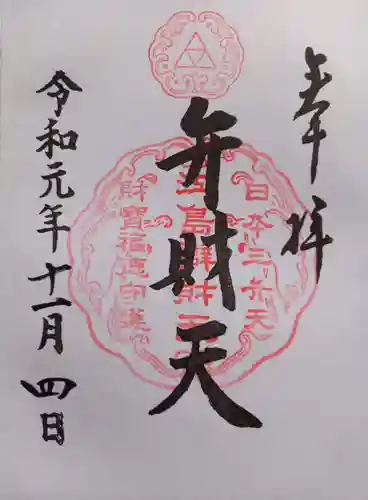 奉拝
日本三弁天
弁財天
財寶福徳守護
令和元年十一月四日